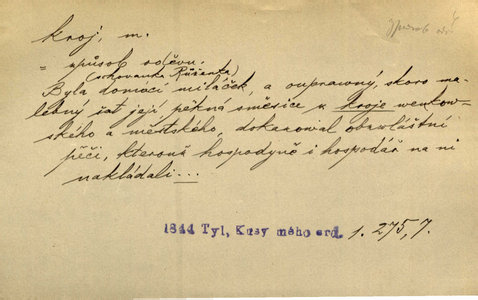 způsob odí
kroj, m.
= způsob oděvu.
(schovanka Růženka)
Byla domácí miláček, a ouprawný, skoro ma-
lebný šat její pěkná směsice z kroje wenkow-
ského a městského, dokazoval obzvláštní
péči, kterouž hospodyně i hospodář na ni
nakládali...
1844 Tyl, Kusy mého srd. 1. 275, 7.